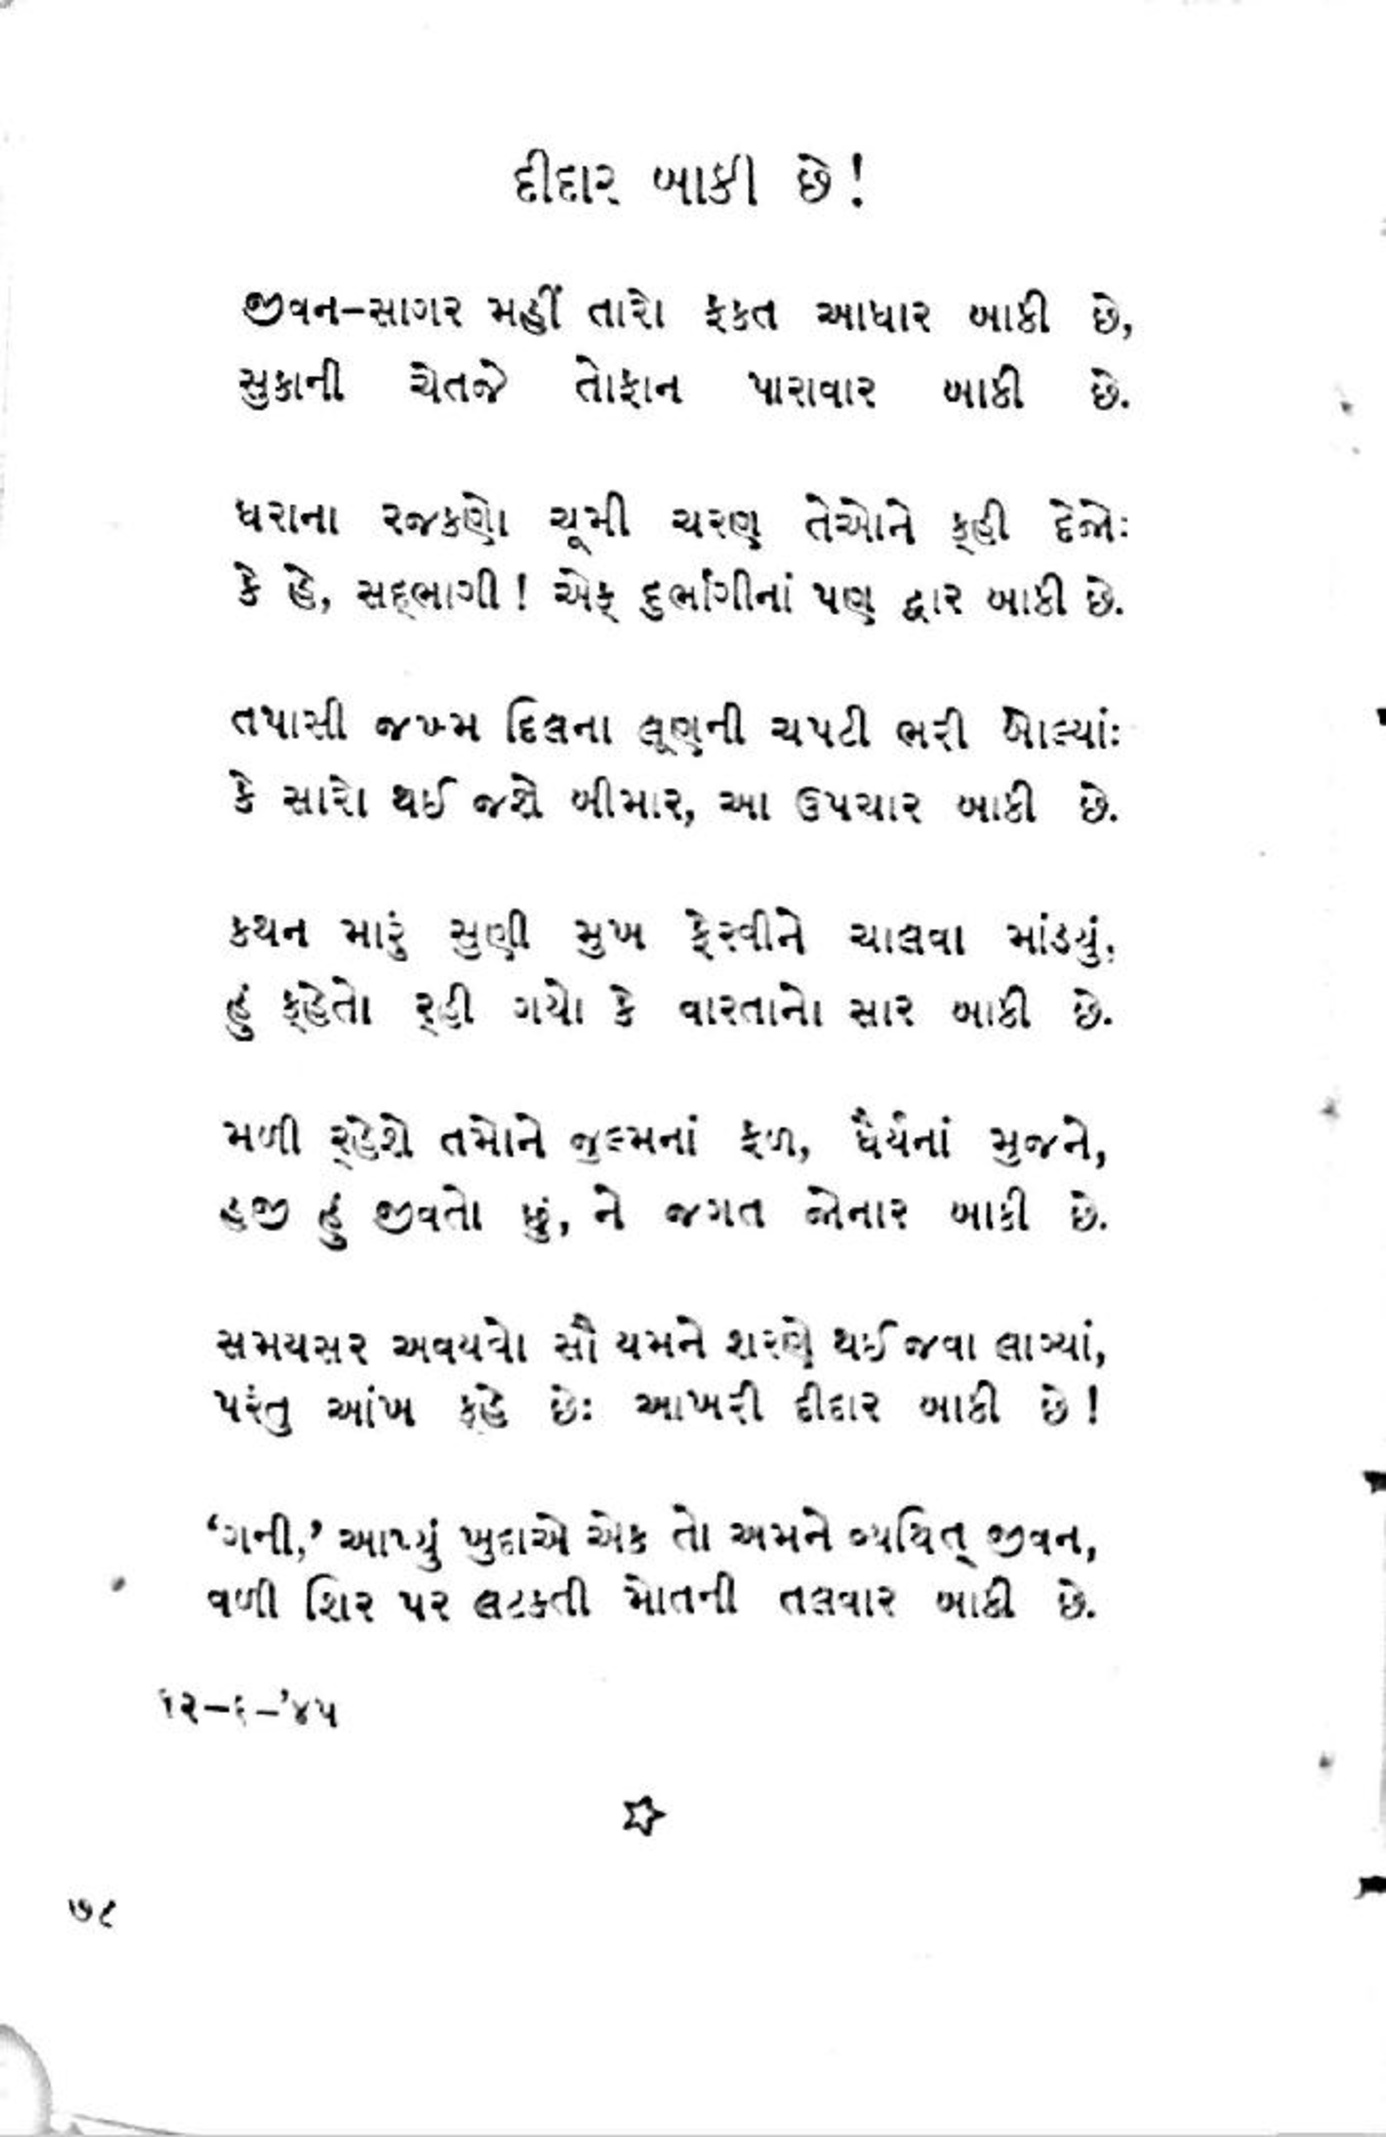 દીદાર બાકી છે!
જીવન-સાગર મહીં તારો ફકત આધાર બાકી છે,
સુકાની ચેતજે તોફાન પારાવાર બાકી છે.
ધરાના રજકણો ચૂમી ચરણ તેઓને ક્હી દેજોઃ
કે હે, સદ્ભાગી! એક્ દુર્ભાગીનાં પણ દ્વાર બાકી છે.
તપાસી જખ્મ દિલના લૂણની ચપટી ભરી બોલ્યાંઃ
કે સારો થઈ જશે બીમાર, આ ઉપચાર બાકી છે.
કથન મારું સુણી મુખ ફેરવીને ચાલવા માંડયું,
હું ક્હેતો ર્‌હી ગયો કે વારતાનો સાર બાકી છે.
મળી ર્‌હેશે તમોને જુલ્મનાં ફળ, ધૈર્યનાં મુજને,
હજી હું જીવતો છું, ને જગત જોનાર બાકી છે.
સમયસર અવયવો સૌ યમને શરણે થઈ જવા લાગ્યાં,
પરંતુ આંખ ક્હે છેઃ આખરી દીદાર બાકી છે!
‘ગની,’ આપ્યું ખુદાએ એક તો અમને વ્યથિત્ જીવન,
વળી શિર પર લટકતી મોતની તલવાર બાકી છે.
૧૨-૬-’૪૫
૭૮